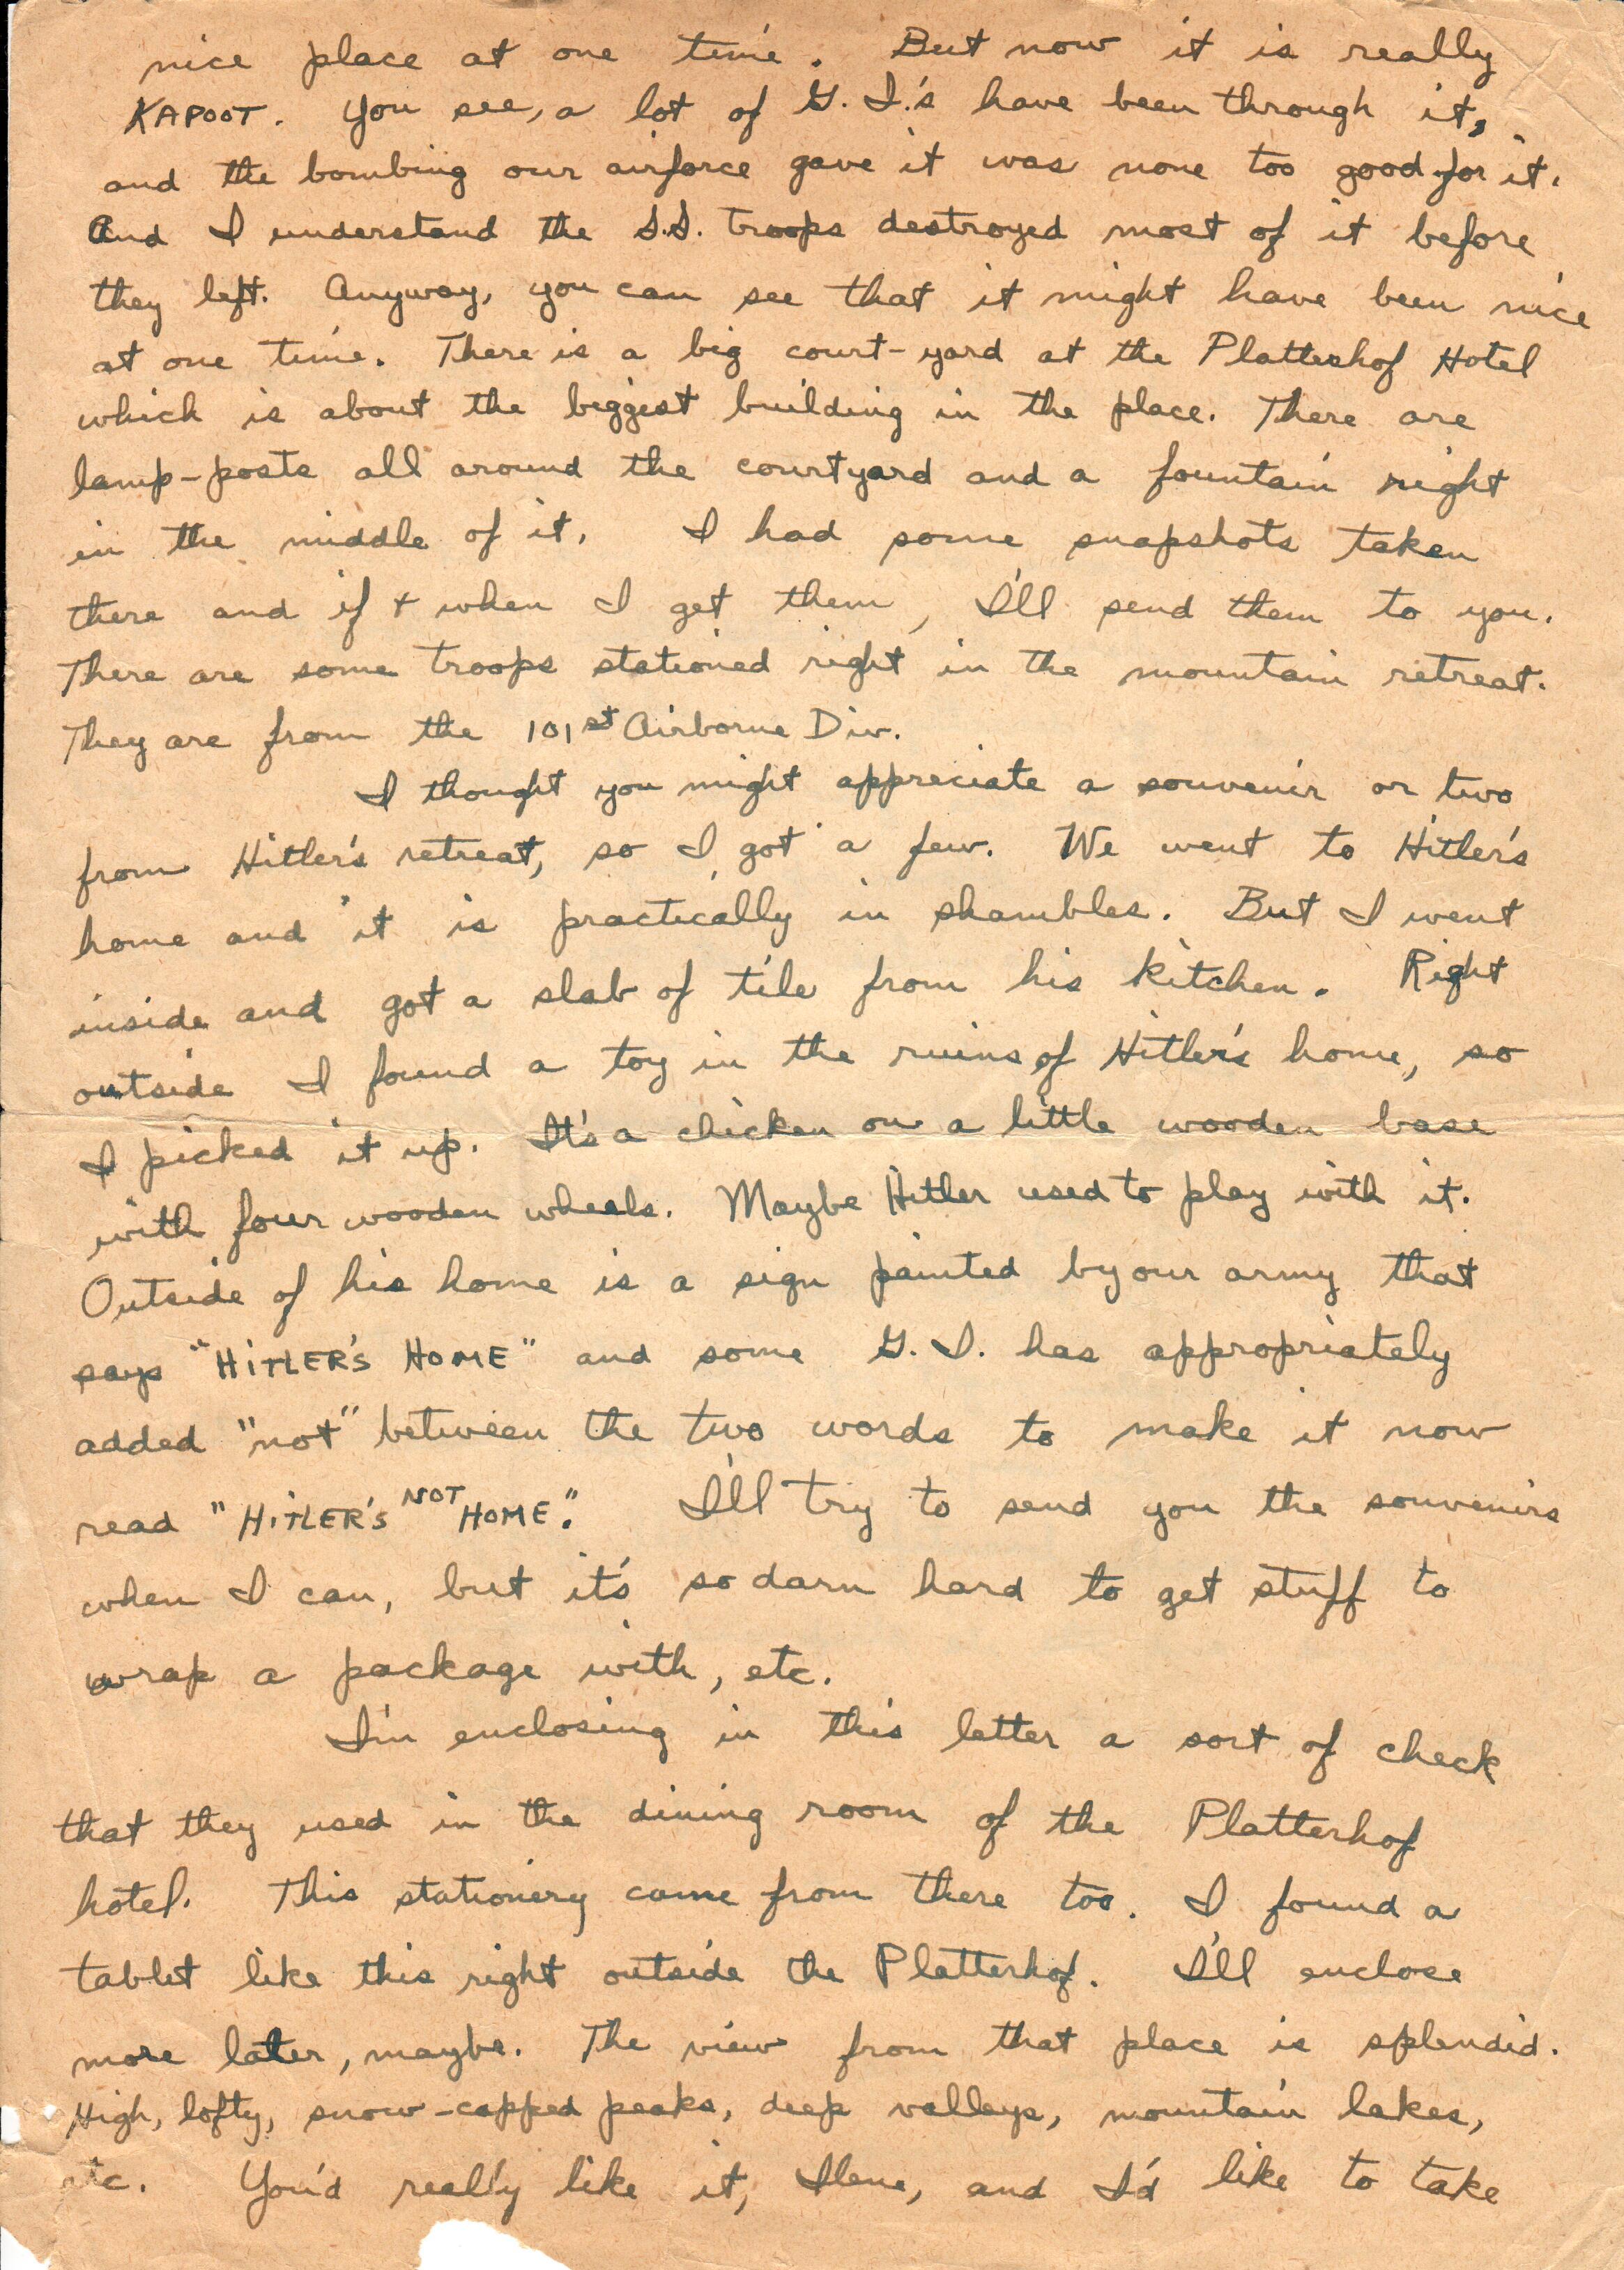 nice place at one time. But now it is really
KAPOOT. You see, a lot of G. I.'s have been through it,
and the bombing our airforce gave it was none too good for it.
And I understand the S.S. troops destroyed most of it before
they left. Anyway, you can see that it might have been nice
at one time. There is a big court-yard at the Platterhof Hotel
which is about the biggest building in the place. There are
lamp-posts all around the courtyard and a fountain right
in the middle of it. I had some snapshots taken
there and if + when I get them, I'll send them to you.
There are some troops stationed right in the mountain retreat.
They are from the 101st Airborne Div.
I thought you might appreciate a souvenir or two
from Hitler's retreat, so I got a few. We went to Hitler's
home and it is practically in shambles. But I went
inside and got a slab of tile from his kitchen. Right
outside I found a toy in the ruins of Hitler's home, so
I picked it up. It's a chicken on a little wooden base
with four wooden wheels. Maybe Hitler used to play with it.
Outside of his home is a sign painted by our army that
says "HITLER'S HOME" and some G. I. has appropriately
added "not" between the two words to make it now
read "HITLER'S NOT HOME." I'll try to send you the souvenirs
when I can, but it's so darn hard to get stuff to
wrap a package with, etc.
I'm enclosing in this letter a sort of check
that they used in the dining room of the Platterhof
hotel. This stationery came from there too. I found a
tablet like this right outside the Platterhof. I'll enclose
more later, maybe. The view from that place is splendid.
High, lofty, snow-capped peaks, deep valleys, mountain lakes,
etc. You'd really like it, Ilene, and I'd like to take